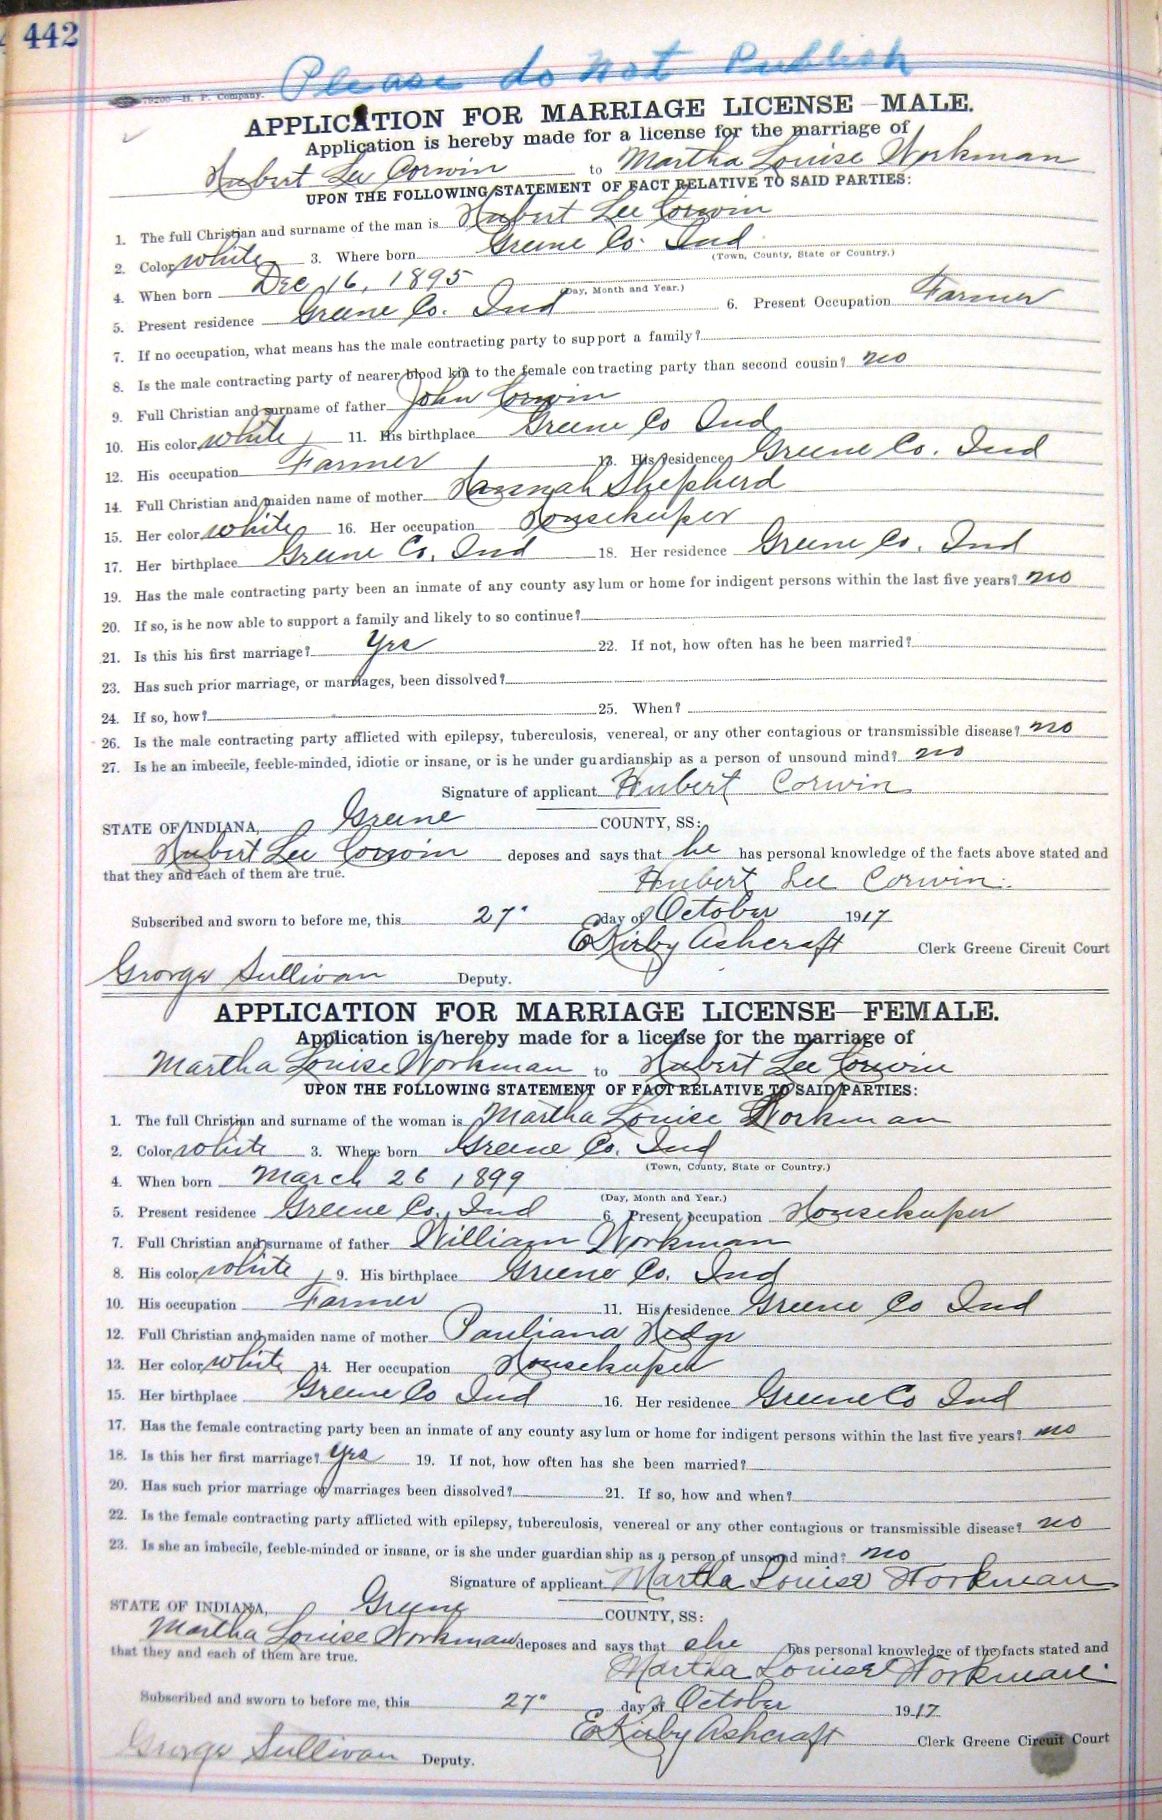 442
Please do not Publish
79200—H. P. Company.
APPLICATION FOR MARRIAGE LICENSE—MALE.
Application is hereby made for a license for the marriage of
Hubert Lee Corwin to Martha Louise Workman
UPON THE FOLLOWING STATEMENT OF FACT RELATIVE TO SAID PARTIES:
1. The full Christian and surname of the man is Hubert Lee Corwin
2. Color white 3. Where born Greene Co. Ind
(Town, County, State or Country.)
4. When born Dec 16, 1895
(Day, Month and Year.)
5. Present residence Greene Co. Ind 6. Present Occupation Farmer
7. If no occupation, what means has the male contracting party to support a family?
8. Is the male contracting party of nearer blood kin to the female contracting party than second cousin? no
9. Full Christian and surname of father John Corwin
10. His color white 11. His birthplace Greene Co Ind
12. His occupation Farmer 13. His residence Greene Co. Ind
14. Full Christian and maiden name of mother Hannah Shepherd
15. Her color white 16. Her occupation Housekeeper
17. Her birthplace Greene Co. Ind 18. Her residence Greene Co. Ind
19. Has the male contracting party been an inmate of any county asylum or home for indigent persons within the last five years? no
20. If so, is he now able to support a family and likely to so continue?
21. Is this his first marriage? Yes 22. If not, how often has he been married?
23. Has such prior marriage, or marriages, been dissolved?
24. If so, how? 25. When?
26. Is the male contracting party afflicted with epilepsy, tuberculosis, venereal, or any other contagious or transmissible disease? no
27. Is he an imbecile, feeble-minded, idiotic or insane, or is he under guardianship as a person of unsound mind? no
Signature of applicant Hubert Corwin
STATE OF INDIANA, Greene COUNTY, SS:
Hubert Lee Corwin deposes and says that he has personal knowledge of the facts above stated and
that they and each of them are true.
Hubert Lee Corwin.
Subscribed and sworn to before me, this 27" day of October 1917
E Kirby Ashcraft Clerk Greene Circuit Court
George Sullivan Deputy.
APPLICATION FOR MARRIAGE LICENSE—FEMALE.
Application is hereby made for a license for the marriage of
Martha Louise Workman to Hubert Lee Corwin
UPON THE FOLLOWING STATEMENT OF FACT RELATIVE TO SAID PARTIES:
1. The full Christian and surname of the woman is Martha Louise Workman
2. Color white 3. Where born Greene Co. Ind
(Town, County, State or Country.)
4. When born March 26 1899
(Day, Month and Year.)
5. Present residence Greene Co. Ind 6. Present occupation Housekeeper
7. Full Christian and surname of father William Workman
8. His color white 9. His birthplace Greene Co. Ind
10. His occupation Farmer 11. His residence Greene Co Ind
12. Full Christian and maiden name of mother Pauliana
13. Her color white 14. Her occupation Housekeeper
15. Her birthplace Greene Co Ind 16. Her residence Greene Co Ind
17. Has the female contracting party been an inmate of any county asylum or home for indigent persons within the last five years? no
18. Is this her first marriage? Yes 19. If not, how often has she been married?
20. Has such prior marriage or marriages been dissolved? 21. If so, how and when?
22. Is the female contracting party afflicted with epilepsy, tuberculosis, venereal or any other contagious or transmissible disease? no
23. Is she an imbecile, feeble-minded or insane, or is she under guardianship as a person of unsound mind? no
Signature of applicant Martha Louise Workman
STATE OF INDIANA, Greene COUNTY, SS:
Martha Louise Workman deposes and says that she has personal knowledge of the facts stated and
that they and each of them are true.
Martha Louise Workman.
Subscribed and sworn to before me, this 27" day of October 1917
E Kirby Ashcraft Clerk Greene Circuit Court
George Sullivan Deputy.